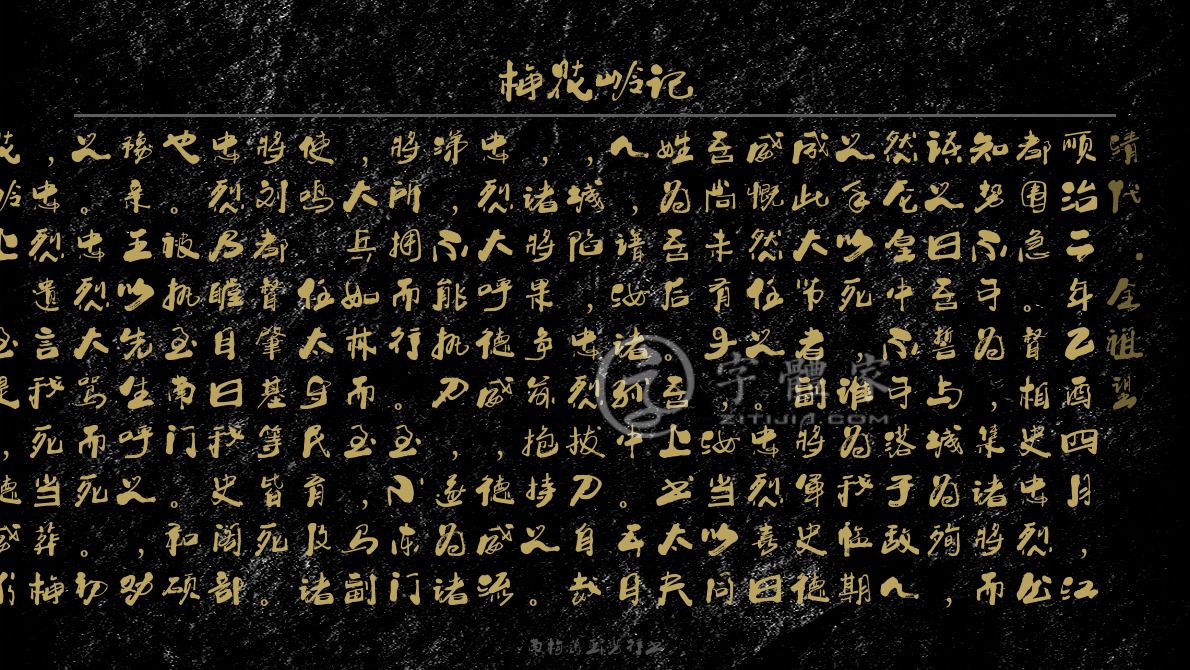 梅花岭记
清代.全祖望
顺治二年乙酉四月,江
都围急。督相史忠烈公
知势不可为,集诸将而
语之曰吾誓与城为殉,
然仓皇中不可落于敌人
之手以死,谁为我临期
成此大节者副将军史德
威慨然任之。忠烈喜曰
吾尚未有子,汝当以同
姓为吾后。吾上书太夫
人,谱汝诸孙中。五日
,城陷,忠烈拔刀自裁
,诸将果争前抱持之。
忠烈大呼德威,德威流
涕,不能执刀,遂为诸
将所拥而行。至小东门
,大兵如林而至,马副
使鸣 任太守民育及诸
将刘都督肇基等皆死。
忠烈乃瞠目曰我史阁部
也。被执至南门。和硕
豫亲王以先生呼之,劝
之。忠烈大骂而死。初
,忠烈遗言我死当葬梅
花岭上 至是,德威
字體家
ZITIJIA.COM